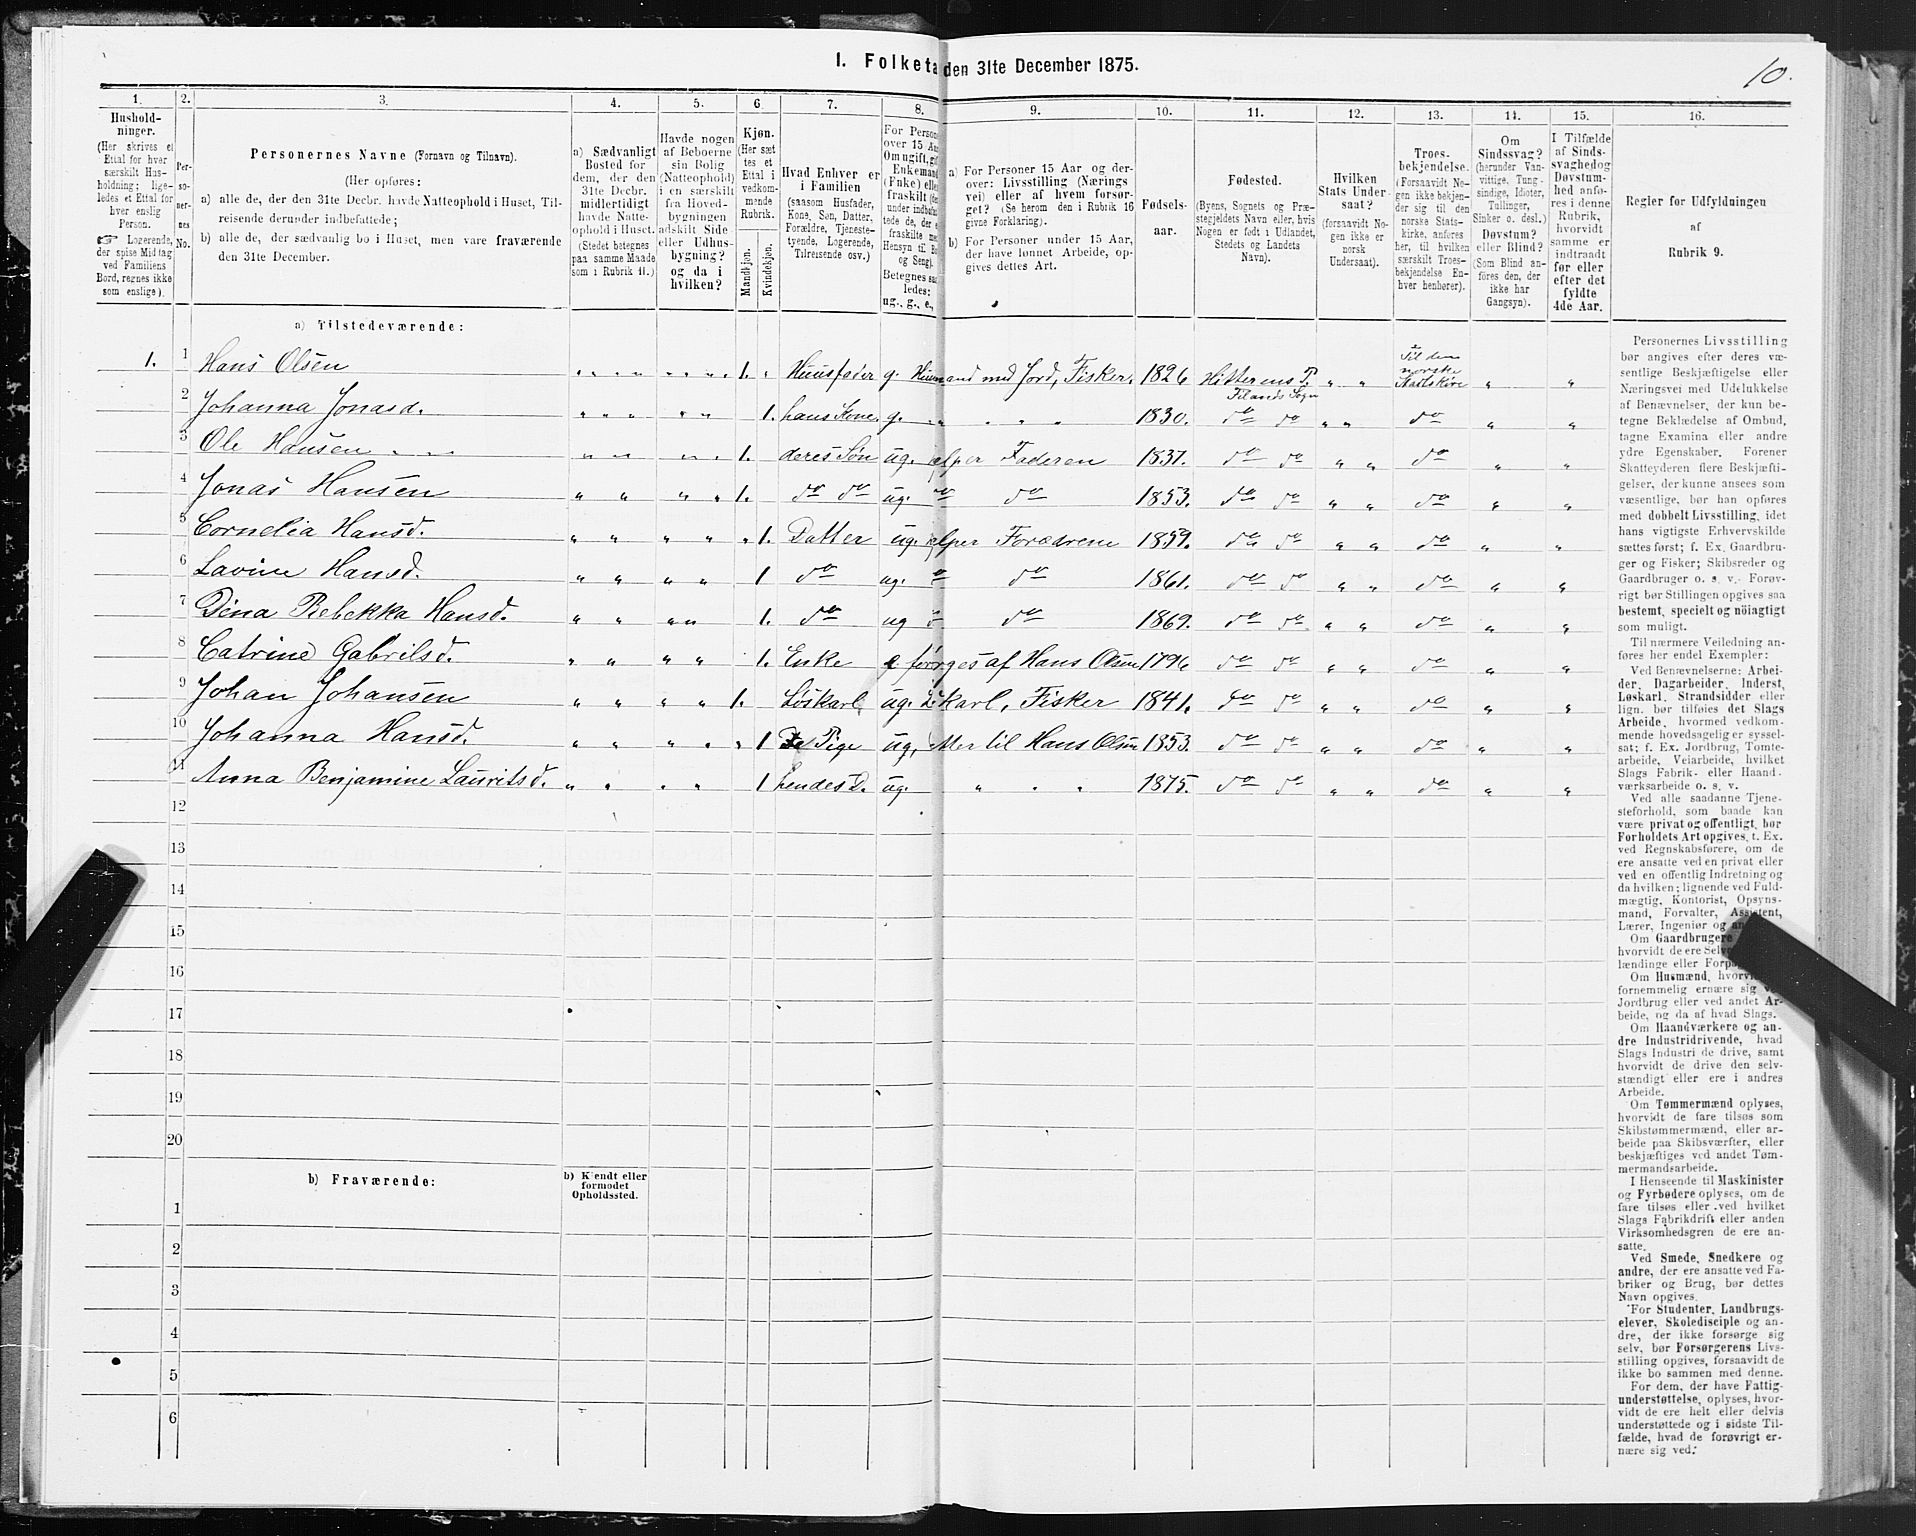 1. Folketa den 31te December 1875.
10.
1. 2. 3. 4. 5. 6. 7. 8. 9. 10. 11. 12. 13. 14. 15. 16.
Husholdninger. (Her skrives et Ettal for hver særskilt Husholdning; ligeledes et Ettal for hver enslig Person. ☞ Logerende, der spise Middag ved Familiens Bord, regnes ikke som enslige).
Personernes No.
Personernes Navne (Fornavn og Tilnavn).
(Her opføres:
a) alle de, der den 31te Decbr. havde Natteophold i Huset, Tilreisende derunder indbefattede;
b) alle de, der sædvanlig bo i Huset, men vare fraværende den 31te December.
a) Sædvanligt Bosted for dem, der den 31te Decbr. midlertidigt havde Natteophold i Huset. (Stedet betegnes paa samme Maade som i Rubrik 11.)
Havde nogen af Beboerne sin Bolig (Natteophold) i en særskilt fra Hovedbygningen adskilt Side eller Udhusbygning? og da i hvilken?
Kjøn. (Her sættes et Ettal i vedkommende Rubrik.
Mandkjøn. Kvindekjøn.
Hvad Enhver er i Familien (saasom Husfader, Kone, Søn, Datter, Forældre, Tjenestetyende, Logerende, Tilreisende osv.)
For Person over 15 Aa Om ugift, gif Enkemand (Enke) elle fraskilt (for under indbefat tede de, der e fraskilte me Hensyn til Bo og Seng). Betegnes saa ledes: ug., g., e.,
a) For Personer 15 Aar og derover: Livsstilling (Nærings vei) eller af hvem forsørget? (Se herom den i Rubrik 16 givne Forklaring).
b) For Personer under 15 Aar, der have lønnet Arbeide, opgives dettes Art.
Fødselsaar.
Fødested. (Byens, Sognets og Præstegjeldets Navn eller, hvis Nogen er født i Udlandet, Stedets og Landets Navn).
Hvilken Stats Undersaat? (forsaavidt Nogen ikke er norsk Undersaat).
Troesbekjendelse. (Forsaavidt Nogen ikke bekjender sig til den norske Statskirke, anføres her, til hvilken særskilt Troesbekjendelse Enhver henhører).
Om Sindssvag? (herunder Vanvittige, Tungsindige, Idioter, Tullinger, Sinker o. desl.) Døvstum? eller Blind? (Som Blind anføres den, der ikke har Gangsyn).
I Tilfælde af Sindssvaghed og Døvstumhed anføres i denne Rubrik, hvorvidt samme er indtraadt før eller efter det fyldte 4de Aar.
Regler for Udfyldningen af Rubrik 9.
a) Tilstedeværende:
1. 1 Hans Olsen 1. Huusfader g. Huusmand med Jord, Fisker. 1826 Hitterens P. Filands Sogn Til den norske Statskirke
2 Johanna Jonasd. 1. hans Kone g. 1830. do do do
3 Ole Hansen 1. deres Søn ug. jælper Faderen 1837. do do do
4 Jonas Hansen 1. do do ug. do do 1853. do do do
5 Cornelia Hansd. 1. Datter ug. jælper Forædrene 1859. do do do
6 Lavine Hansd. 1 do ug. do 1861. do do do
7 Dina Rebekka Hansd. 1. do ug do 1869. do do do
8 Catrine Gabrilsd. 1. Enke e forørges af Hans Olsen 1796 do do do
9 Johan Johansen 1. Løskarl ug. karl, Fisker 1841. do do do
10 Johanna Hansd. 1 Pige ug. atter til Hans Olsen 1853. do do do
11 Anna Benjamine Lauritsd. 1 hendes D. ug. 1875. do do do
12
13
14
15
16
17
18
19
20
b) Fraværende: b) Kjendt eller formodet Opholdssted.
1
2
3
4
5
6
Personernes Livsstilling
bør angives efter deres væ-
sentlige Beskjæftigelse eller
Næringsvei med Udelukkelse
af Benævnelser, der kun be-
tegne Beklædelse af Ombud,
tagne Examina eller andre
ydre Egenskaber. Forener
Skatteyderen flere Beskjæfti-
gelser, der kunne ansees som
væsentlige, bør han opføres
med dobbelt Livsstilling, idet
hans vigtigste Erhvervskilde
sættes først; f. Ex. Gaardbru-
ger og Fisker; Skibsreder og
Gaardbruger o. s. v. Forøv-
rigt bør Stillingen opgives saa
bestemt, specielt og nöiagtigt
som muligt.
Til nærmere Veiledning an-
føres her endel Exempler:
Ved Benævnelserne: Arbei-
der, Dagarbeider, Inderst,
Løskarl, Strandsidder eller
lign. bør tilføies det Slags
Arbeide, hvormed vedkom-
mende hovedsagelig er syssel-
sat; f. Ex. Jordbrug, Tomte-
arbeide, Veiarbeide, hvilket
Slags Fabrik- eller Haand-
værksarbeide o. s. v.
Ved alle saadanne Tjene-
steforhold, som baade kan
være privat og offentligt, bør
Forholdets Art opgives, t. Ex.
ved Regnskabsførere, om de
ere ansatte ved en privat eller
ved en offentlig Indretning og
da hvilken; lignende ved Fuld-
mægtig, Kontorist, Opsyns-
mand, Forvalter, Assistent,
Lærer, Ingeniør og
Om Gaardbrugere
hvorvidt de ere
lændinge eller
Om Husmænd,
fornemmelig ernære sig
Jordbrug eller ved andet Ar-
beide, og da af hvad Slags.
Om Haandværkere og an-
dre Industridrivende, hvad
Slags Industri de drive, samt
hvorvidt de drive den selv-
stændigt eller ere i andres
Arbeide.
Om Tømmermænd oplyses,
hvorvidt de fare tilsøs som
Skibstømmermænd, eller ar-
beide paa Skibsværfter, eller
beskjæftiges ved andet Tøm-
mermandsarbeide.
I Henseende til Maskinister
og Fyrbødere oplyses, om de
fare tilsøs eller ved hvilket
Slags Fabrikdrift eller anden
Virksomhedsgren de ere an-
satte.
Ved Smede, Snedkere og
andre, der ere ansatte ved Fa-
briker og Brug, bør dettes
Navn opgives.
For Studenter, Landbrugs-
elever, Skoledisciple og an-
dre, der ikke forsørge sig
selv, bør Forsørgerens Livs-
stilling opgives, forsaavidt de
ikke bo sammen med denne.
For dem, der have Fattig-
understøttelse, oplyses, hvor-
vidt de ere helt eller delvis
understøttede og i sidste Til-
fælde, hvad de forøvrigt er-
nære sig ved.